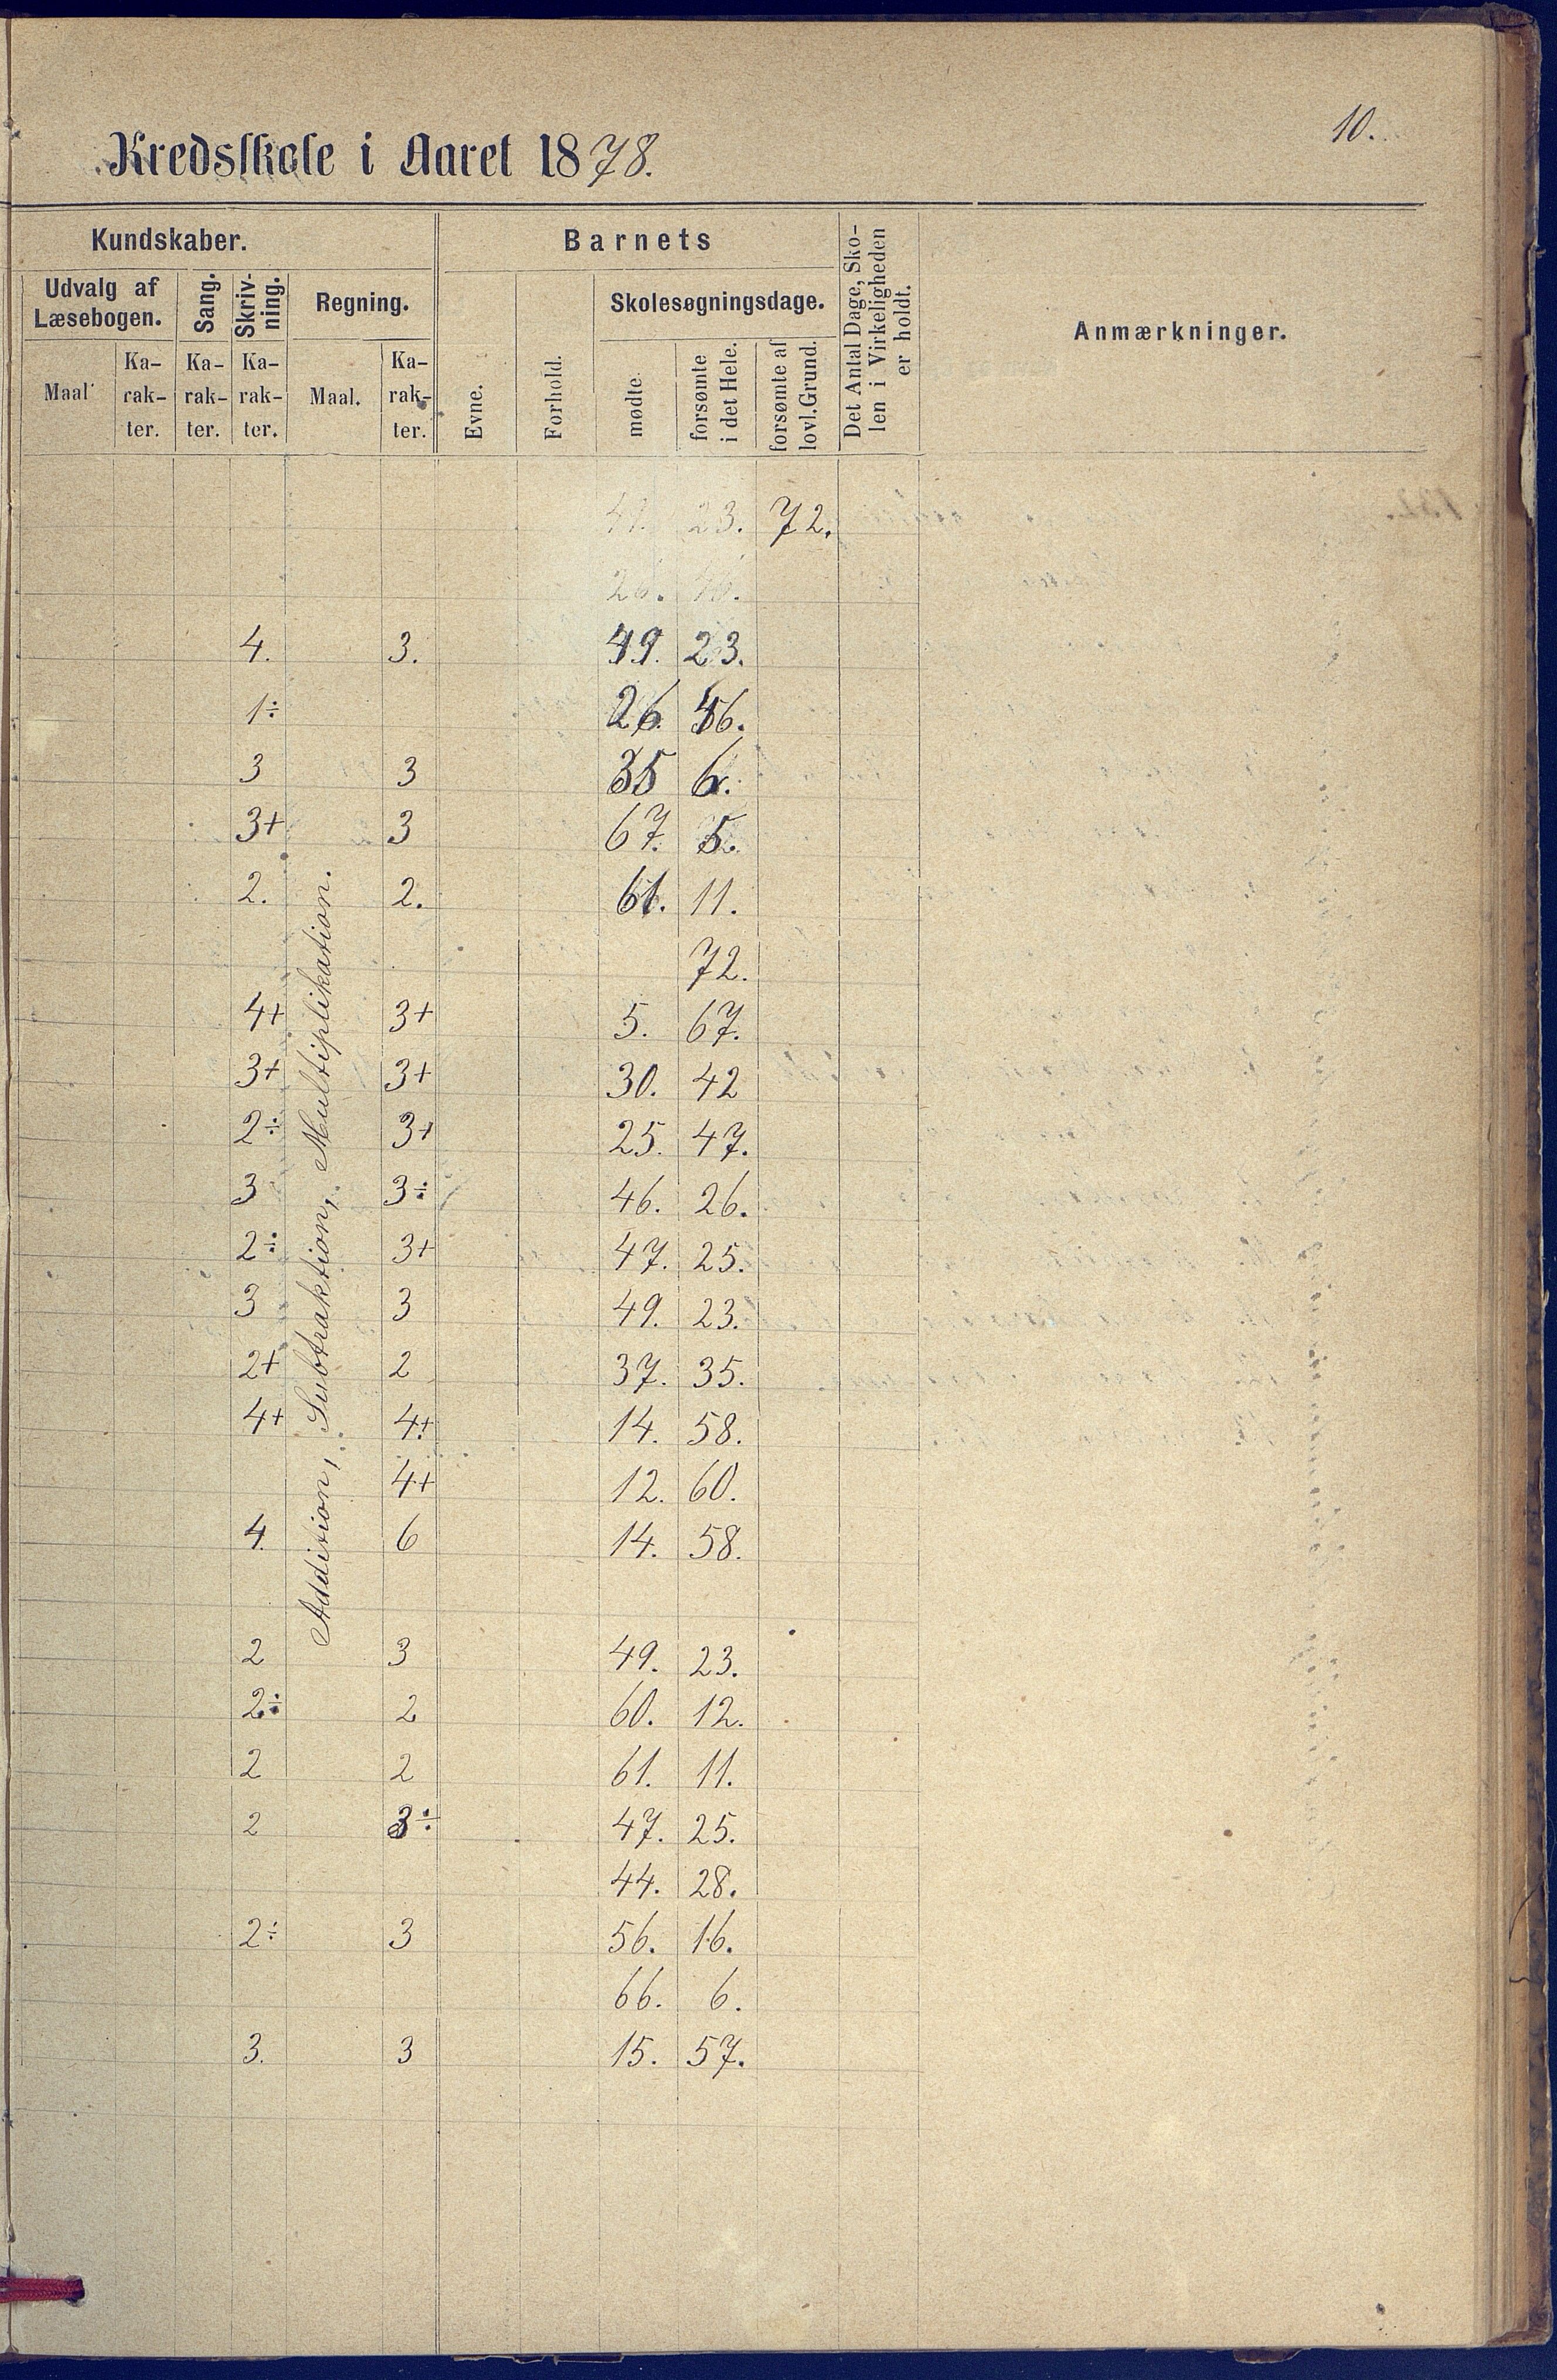 10.
Kredsskole i Aaret 1878.
Kundskaber. Barnets Det Antal Dage, Sko- len i Virkeligheden er holdt. Anmærkninger.
Udvalg af Læsebogen. Sang. Skriv- ning. Regning. Evne. Forhold. Skolesøgningsdage.
Maal Ka- rak- ter. Ka- rak- ter. Ka- rak- ter. Maal. Ka- rak- ter. mødte. forsømte i det Hele. forsømte af lovl. Grund.
Addition, Subtraktion, Multiplikation.
23. 72.
26. 46.
4. 3. 49. 23.
1÷ 26. 46.
3 3 35 6.
3+ 3 67. 5.
2. 2. 61. 11.
72.
4+ 3+ 5. 67.
3+ 3+ 30. 42
2÷ 3+ 25. 47.
3 3÷ 46. 26.
2÷ 3+ 47. 25.
3 3 49. 23.
2+ 2 37. 35.
4+ 4+ 14. 58.
4+ 12. 60.
4. 6 14. 58.
2 3 49. 23.
2÷ 2 60. 12.
2 2 61. 11.
2 3÷ 47. 25.
44. 28.
2÷ 3 56. 16.
66. 6.
3. 3 15. 57.